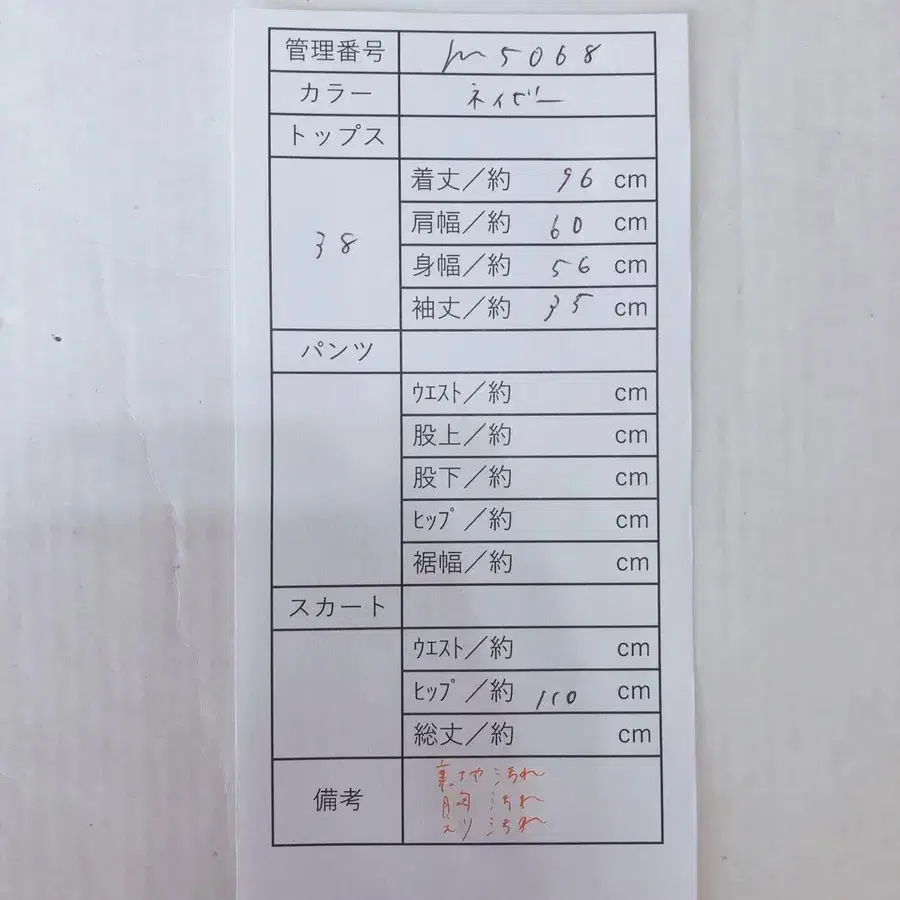 管理番号 m5068
カラー ネイビー
トップス
38
着丈／約 96 cm
肩幅／約 60 cm
身幅／約 56 cm
袖丈／約 35 cm
パンツ
ｳｴｽﾄ／約 cm
股上／約 cm
股下／約 cm
ﾋｯﾌﾟ／約 cm
裾幅／約 cm
スカート
ｳｴｽﾄ／約 cm
ﾋｯﾌﾟ／約 110 cm
総丈／約 cm
備考
裏地汚れ
胸汚れ
えり汚れ